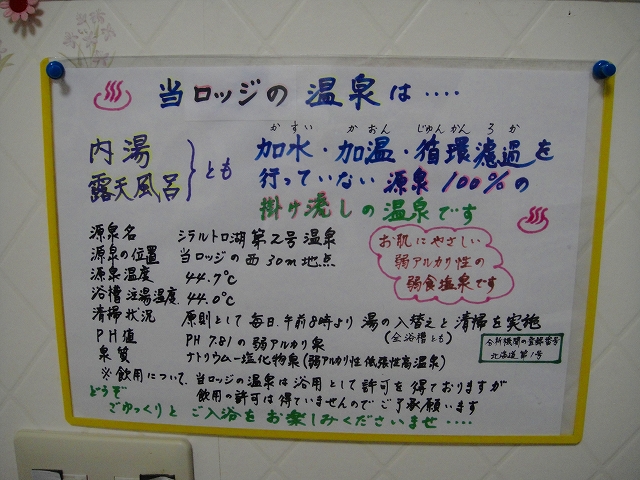 当ロッジの 温泉は‥‥
内湯
露天風呂
とも
かすい かおん じゅんかん ろか
加水・加温・循環濾過を
行っていない 源泉100%の
掛け流しの温泉です
お肌にやさしい
弱アルカリ性の
弱食塩泉です
源泉名 シラルトロ湖 第2号温泉
源泉の位置 当ロッジの西30m地点
源泉温度 44.7℃
浴槽注湯温度 44.0℃
清掃状況 原則として毎日、午前8時より 湯の入替えと清掃を実施
(全浴槽とも)
PH値 PH 7.81の弱アルカリ泉
泉質 ナトリウムー塩化物泉(弱アルカリ性低張性高温泉)
分析機関の登録番号
北海道第1号
※飲用について、当ロッジの温泉は浴用として許可を得ておりますが
飲用の許可は得ていませんのでご了承願います
どうぞ
ごゆっくりと ご入浴をお楽しみくださいませ‥‥